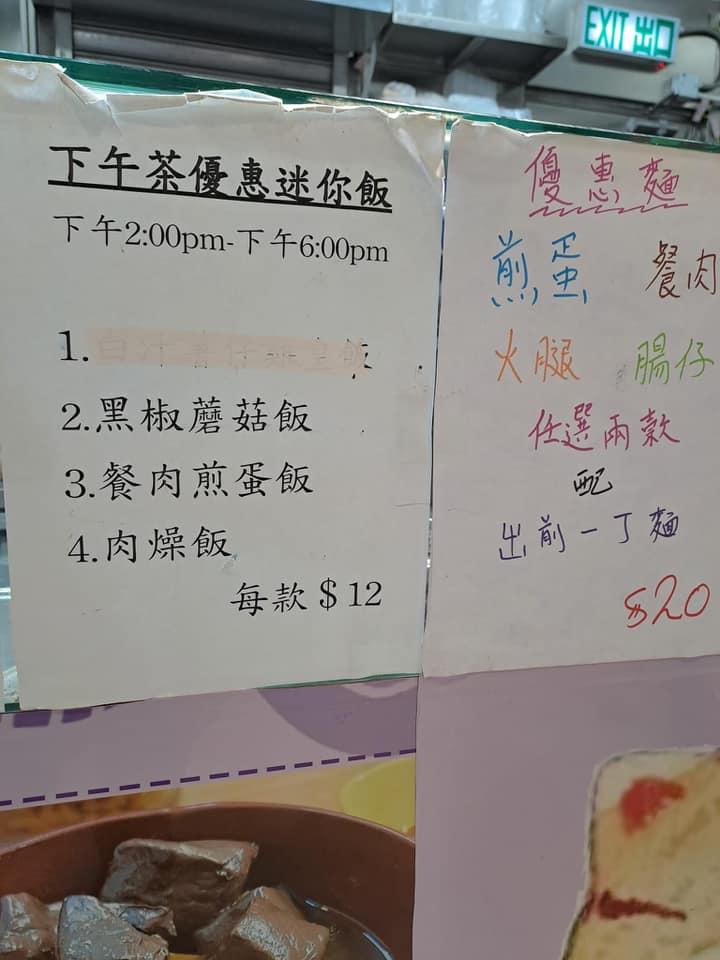 EXIT 出口
下午茶優惠迷你飯
下午2:00pm-下午6:00pm
1.
2.黑椒蘑菇飯
3.餐肉煎蛋飯
4.肉燥飯
每款$12
優惠麵
煎蛋 餐肉
火腿 腸仔
任選兩款
配
出前一丁麵
$20